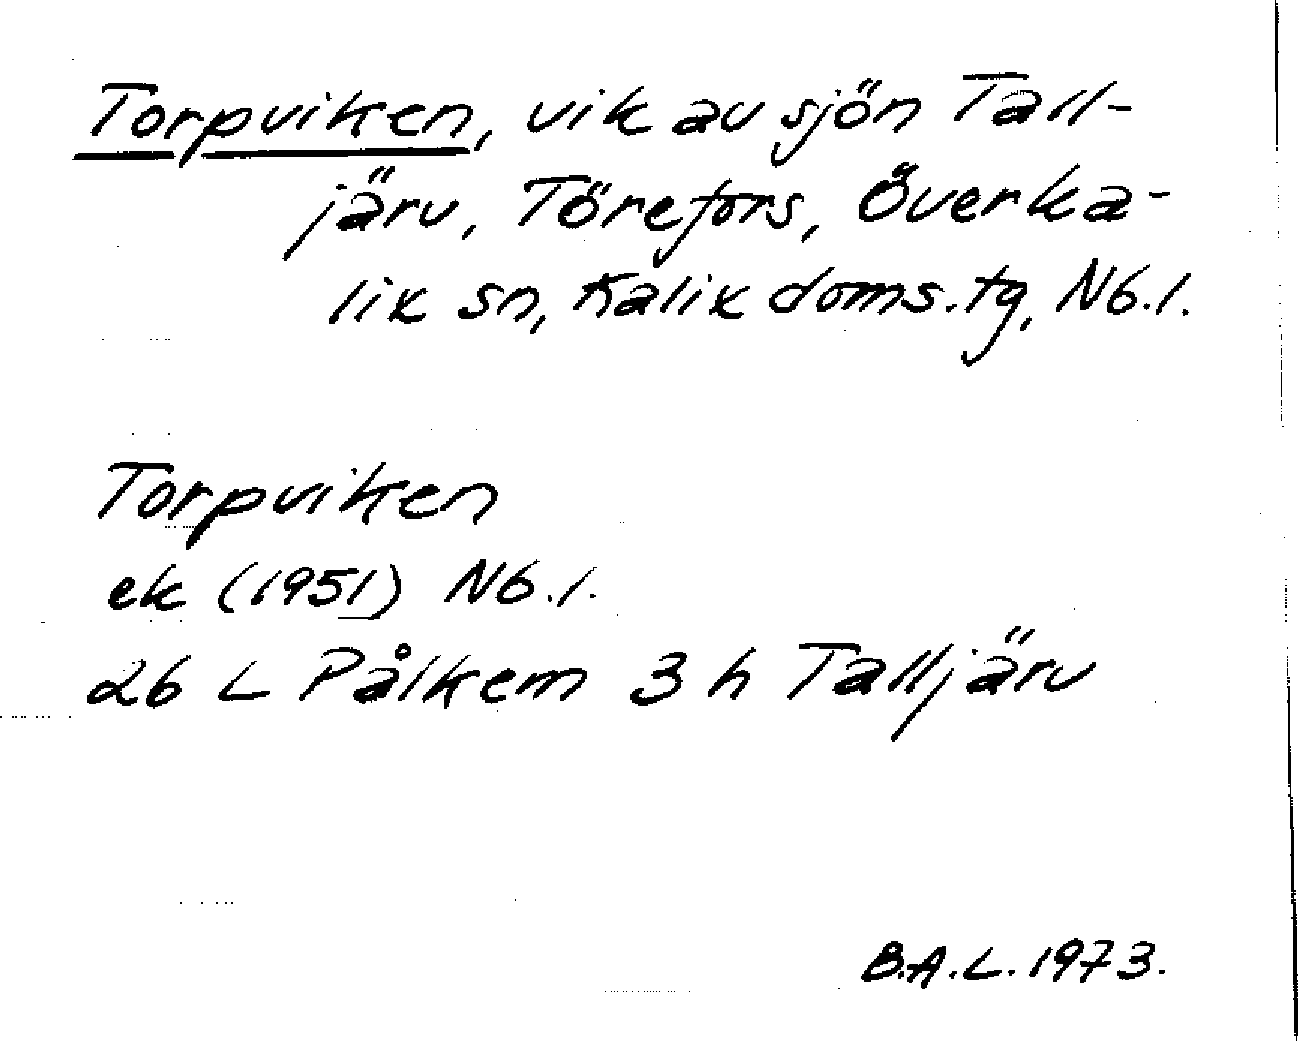 Torpviken, vik av sjön Tall-
järv, Törefors, Överka-
lix sn, Kalix doms.tg, Nb.l.
Torpviken
ek (1951) Nb.l.
26 L Pålkem 3 h Talljärv
B.A.L. 1973.